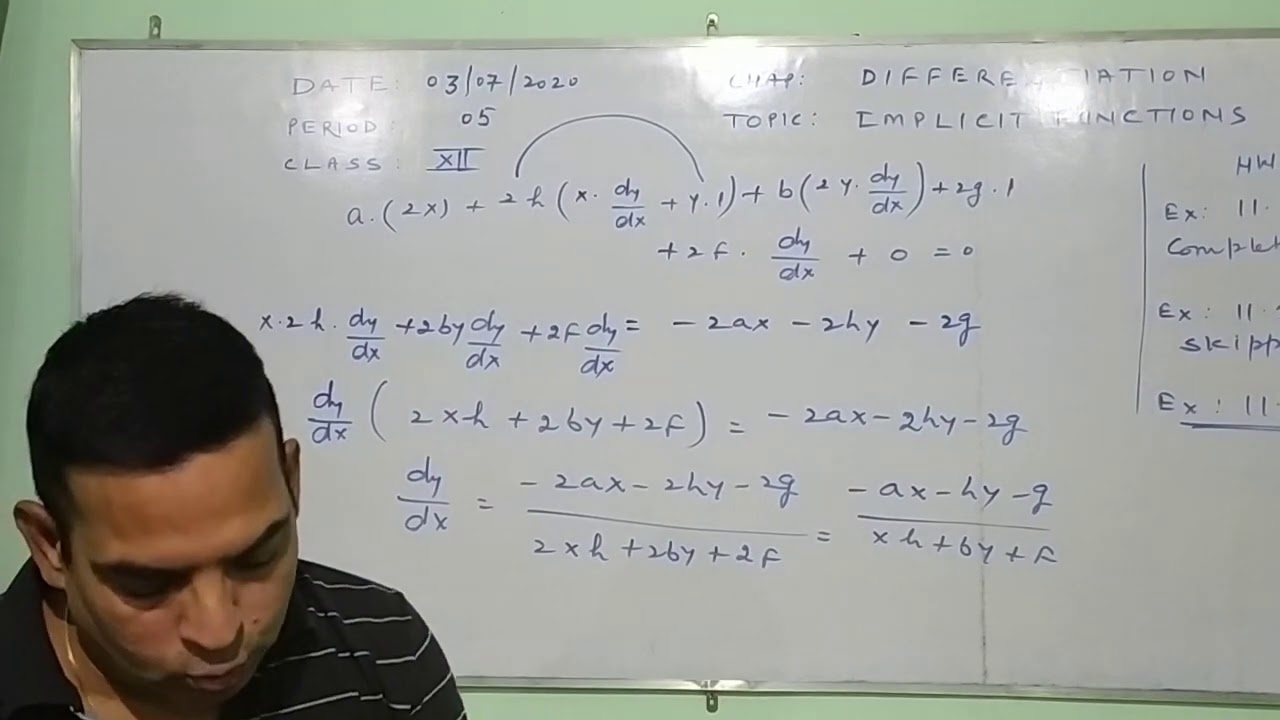 DATE: 03/07/2020
PERIOD: 05
CLASS: XII
CHAP: DIFFERENTIATION
TOPIC: IMPLICIT FUNCTIONS
a.(2x) + 2h(x. dy/dx + y.1) + b(2y. dy/dx) + 2g.1
+ 2f. dy/dx + 0 = 0
x.2h. dy/dx + 2by dy/dx + 2f dy/dx = -2ax - 2hy - 2g
dy/dx (2xh + 2by + 2f) = -2ax - 2hy - 2g
dy/dx = (-2ax - 2hy - 2g)/(2xh + 2by + 2f) = (-ax - hy - g)/(xh + by + f)
HW
Ex: 11.
Ex: 11.
Ex: 11.